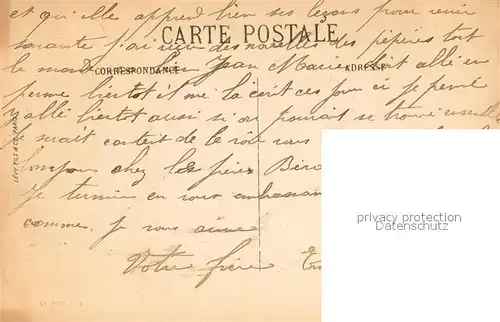 et qu'elle apprend bien ses leçons pour venir
CARTE POSTALE
savante j'ai reçu des nouvelles des pépères tout
le monde bien Jean Marie doit allé en
CORRESPONDANCE
ADRESSE
perme bientot il me la écrit ces jour ci je pensé
y allé bientot aussi si on pouvait se trouvé
je serait content de le voir
bonjour chez les frères
Je termine en vous embrassant
comme je vous aime
Votre frère
LEVY FILS & Cie, PARIS
privacy protection
Datenschutz